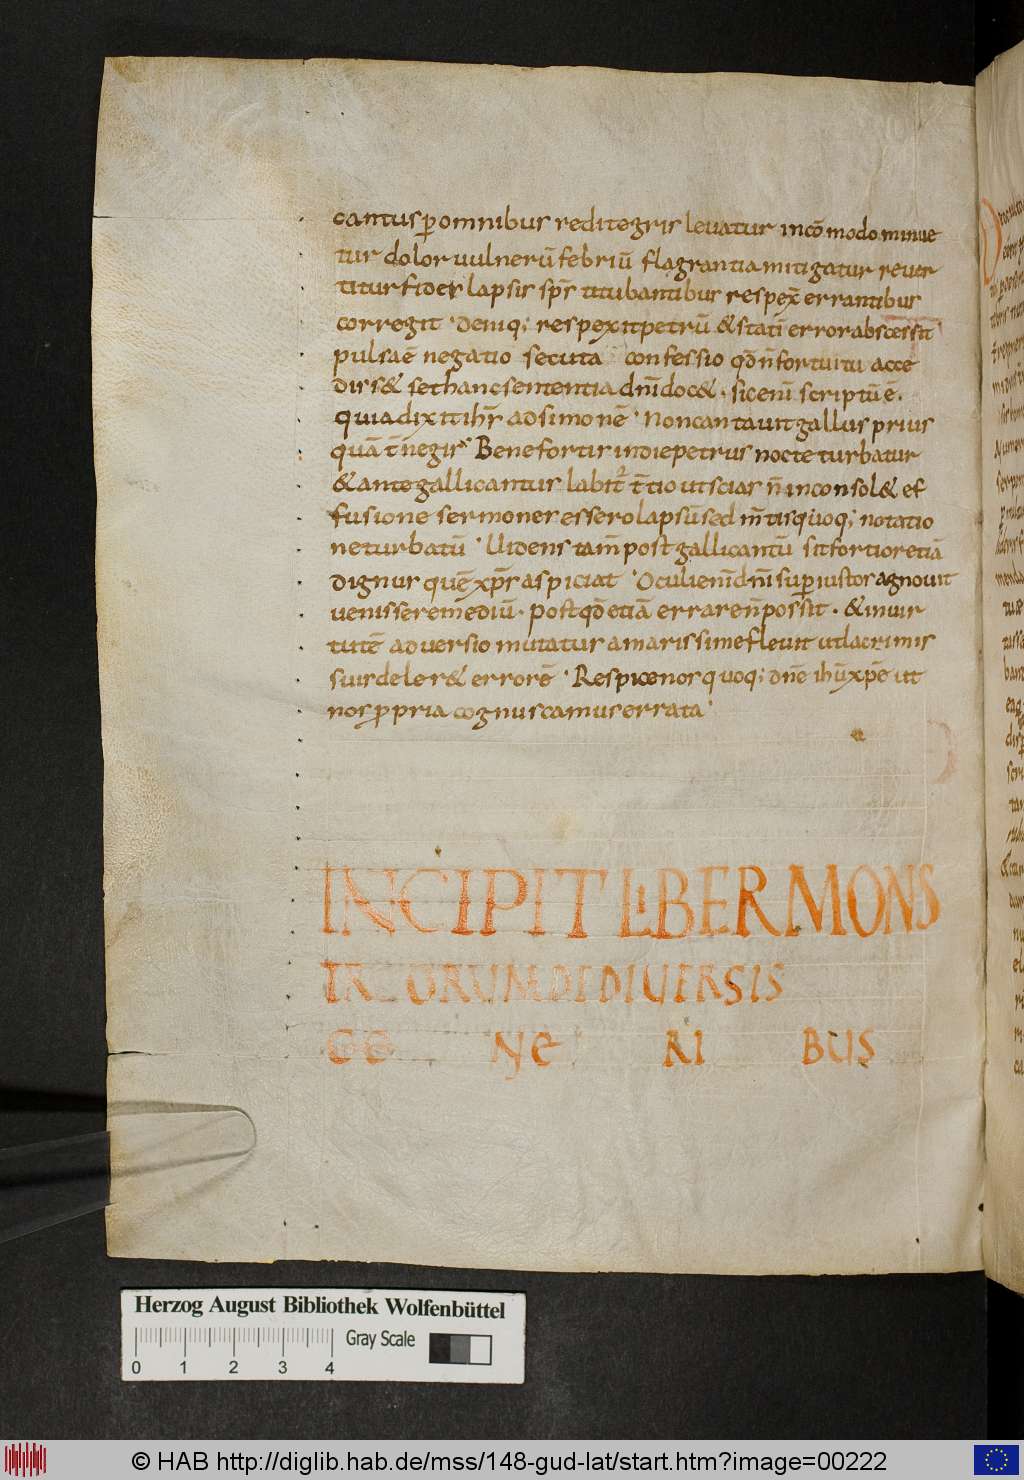 cantus ꝑ omnibus redit egris levatur incōmodo minue
tur dolor vulnerū febriū flagrantia mitigatur rever
titur fides lapsis sp̄s titubantibus respex̄ errantibus
corregit · deniq; respexit petrū & statī error abscessit
pulsa ē negatio secuta confessio qd̄ n̄ fortuitu acce
disset sethanc sententia dn̄i docet · sic enī scriptū ē ·
quia dixit ihs̄ ad simonē · Non cantavit gallus prius
quā t̄ negis · Bene fortis in die petrus nocte turbatur
& ante gallicantus labit᷑ t̄tio ut scias n̄ inconsolet ef
fusione sermones esse rolapsū sed m̄tis quoq; notatio
ne turbatū · Uidens tam̄ post gallicantū sit fortior etiā
dignus quē xp̄s aspiciat · Oculi enī dn̄i sup iustos agnovit
venisse remediū · post qd̄ etiā errare n̄ possit · & in vir
tutē adversio mutatur amarissime flevit ut lacrimis
suis deleret errorē · Respice nos quoq; dn̄e ihū xp̄e ut
nos ꝓpria cognuscamus errata ·
INCIPIT LIBER MONS
TR_ORUM DE DIUERSIS
GE NE RI BUS
Herzog August Bibliothek Wolfenbüttel
Gray Scale
0 1 2 3 4
© HAB http://diglib.hab.de/mss/148-gud-lat/start.htm?image=00222